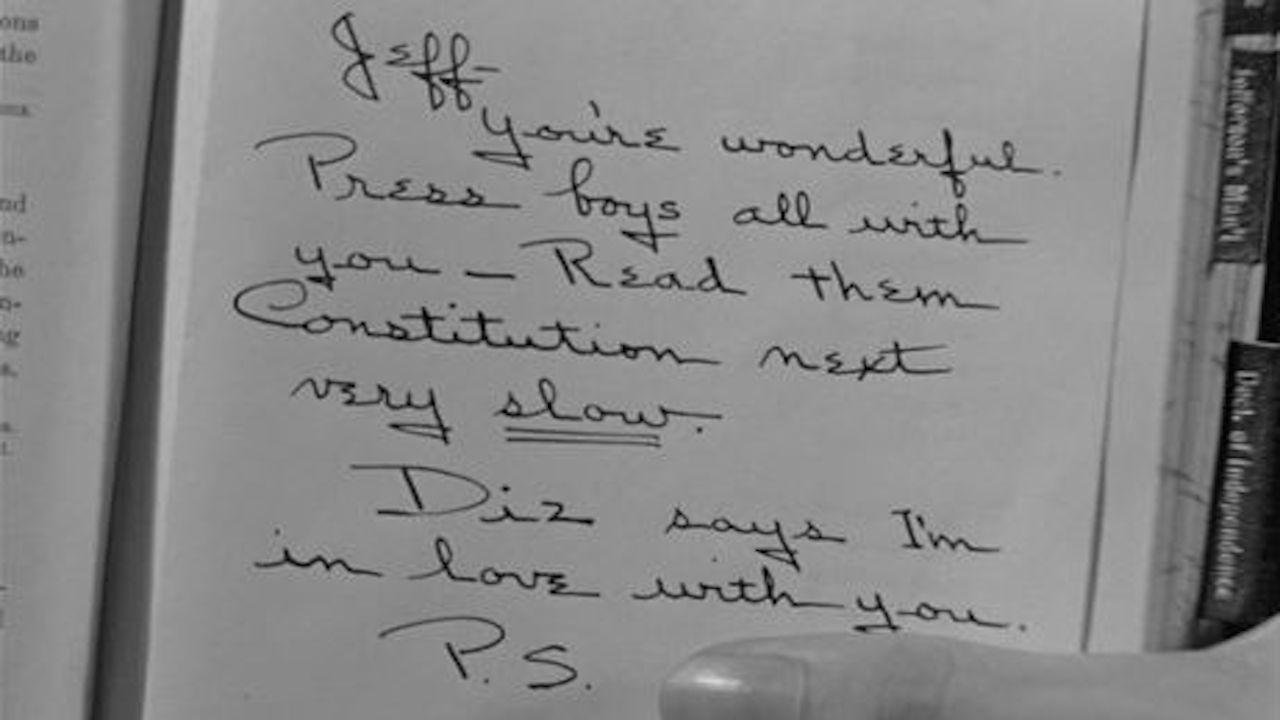 ons
the
nd
n-
he
n-
ng
s.
Jeff-
you're wonderful.
Press boys all with
you - Read them
Constitution next
very slow.
Diz says I'm
in love with you.
P.S.
Jefferson's Man'l
Decl. of Independence